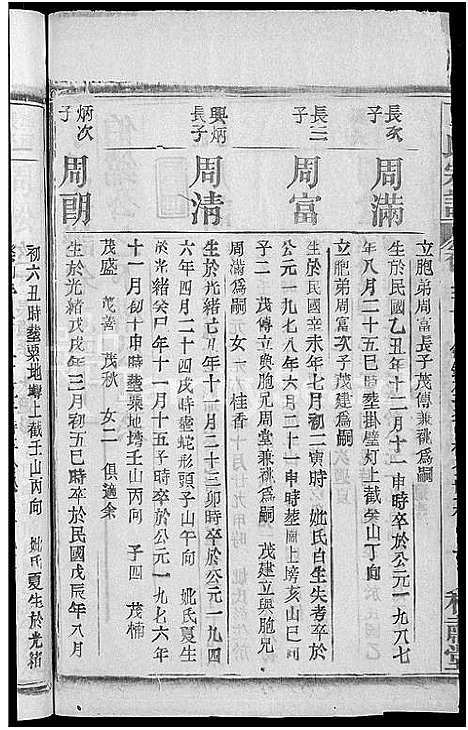 立胞弟周富長子茂傳兼祧爲嗣
長次子
周滿
生於民國乙丑年十二月十一申時卒於公元一九八七
年八月二十五巳時塟掛璧灯上截癸山丁向
立胞弟周富次子茂建爲嗣
長三子
周富
生於民國辛亥年七月初二寅時 妣氏白生失考卒於
公元一九七八年六月二十一申時塟廟上塝亥山巳向
子二 茂傳立與胞兄周堂兼祧爲嗣 茂建立與胞兄
周滿爲嗣 女一 桂香
興炳長子
周清
生於光緒古年十一月二十三卯時卒於公元一九四
六年四月二十四戌時塟蛇形頭子山午向 妣氏夏生
於光緒癸巳年十一月十五子時卒於公元一九七六年
十一月初十申時塟粟地塝壬山丙向 子四 茂楠
茂盛 茂善 茂秋 女二 俱適余
炳次子
周朗
生於光緒戊戌年三月初五巳時卒於民國戊辰年八月
初六丑時塟粟地塝上截壬山丙向 妣氏夏生於光緒